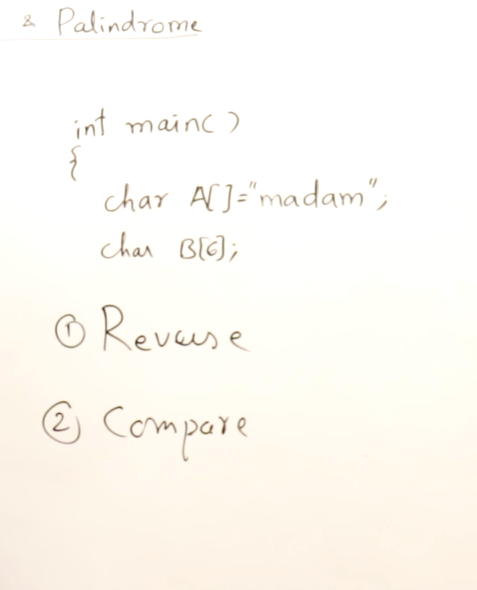 & Palindrome
int main()
{
char A[]="madam";
char B[6];
① Reverse
② Compare